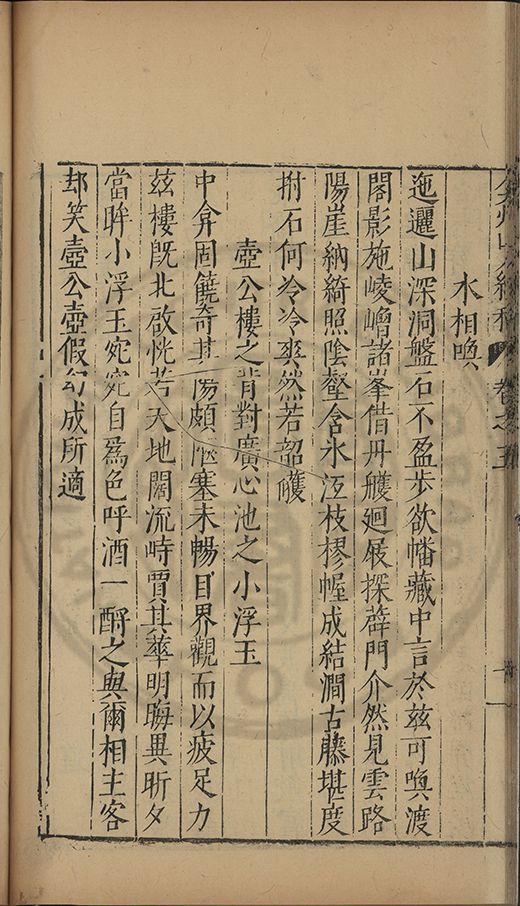 弇州山人續稿 卷之五
水相喚
迤邐山深洞盤石不盈步欲幡藏中言於茲可喚渡
閣影施崚嶒諸峯借丹艧廻屐探薜門介然見雲路
陽崖納綺照陰壑含冰沍枝樛幄成結澗古藤堪度
拊石何冷冷爽然若韶頀
壺公樓之背對廣心池之小浮玉
中弇固饒奇其陽頗阨塞未暢目界觀而以疲足力
茲樓旣北啟恍若天地闢流峙賈其華明晦異昕夕
當眸小浮玉宛宛自爲色呼酒一酹之與爾相主客
却笑壺公壺假幻成所適